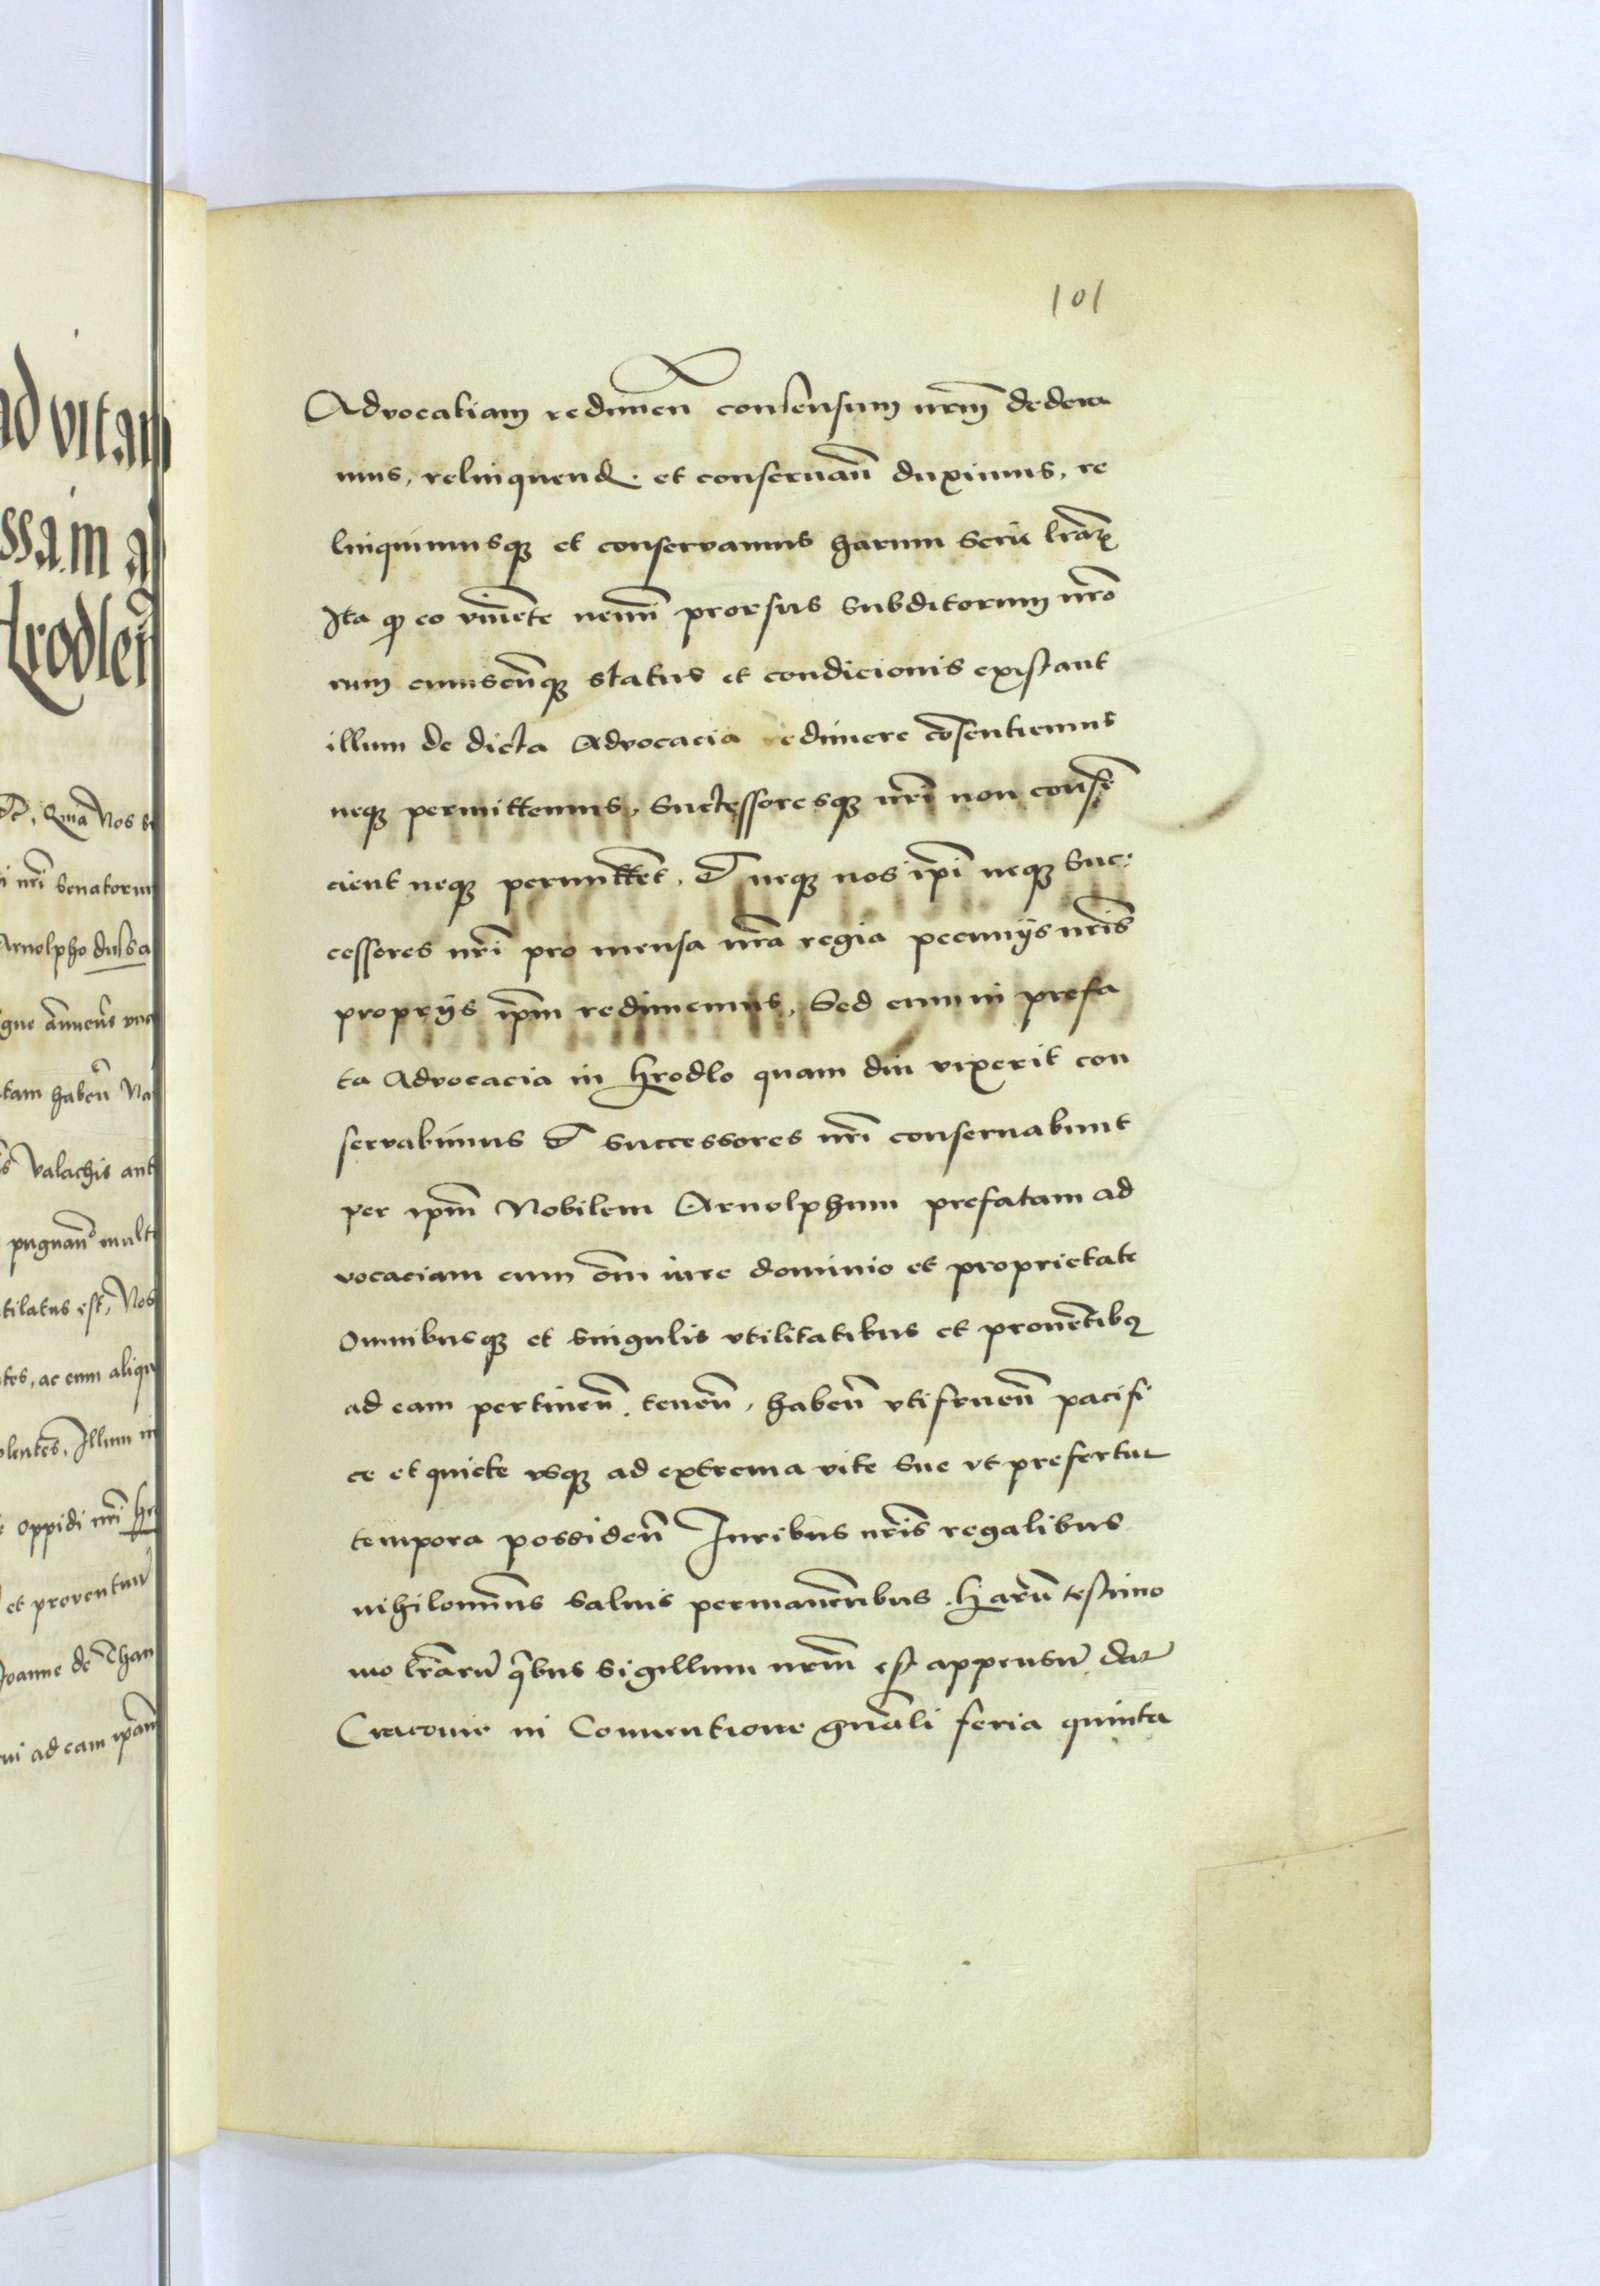 ad vitam
ssam
Hrodlen̄
Quia Nos
nr̄i Senatorum
Arnolpho dussa
tam haben̄ Na
Valachis aut
pugnan̄ mult
tilatus est, Nos
tes, ac eum aliqu
olentes, Illum in
oppidi nr̄i Hr
et proventuū
Joanne de Than
ad eam ip̄am
101
Advocatiam redimen̄ consensum nr̄m dedera
mus, relinquend. et conseruan̄ duximus, re
linquimusq3 et conservamus harum serie lr̄arꝝ
Ita qꝫ eo viuen̄te nemini prorsus subditorum nr̄o
rum cuiuscūq3 status et condicionis existant
illum de dicta Advocacia redimere cōsentiemus
neq3 permittemus, Successoresq3 nr̄i non consē
cient neq3 permittēt, & neq3 nos ip̄i neq3 Suc:
cessores nr̄i pro mensa nr̄a regia pecunijs nr̄is
proprijs ip̄m redimemus, Sed eum in prefa
ta Advocacia in Hrodlo quam diu vixerit con
servabimus & successores nr̄i conseruabunt
per ip̄m Nobilem Arnolphum prefatam ad
vocaciam cum om̄i iure dominio et proprietate
Omnibusq3 et singulis vtilitatibus et prouētibꝫ
ad eam pertinen̄. tenen̄, haben̄ vtifruen̄ pacifi
ce et quiete vsq3 ad extrema vite sue vt prefertur
tempora possiden̄ Iuribus nr̄is regalibus
nihilomin̄us saluis permanen̄tibus. Harū testimo
nio lr̄arū q̄bus sigillum nr̄m est appensū dat̄
Cracouie in Conuentione gn̄ali feria quinta